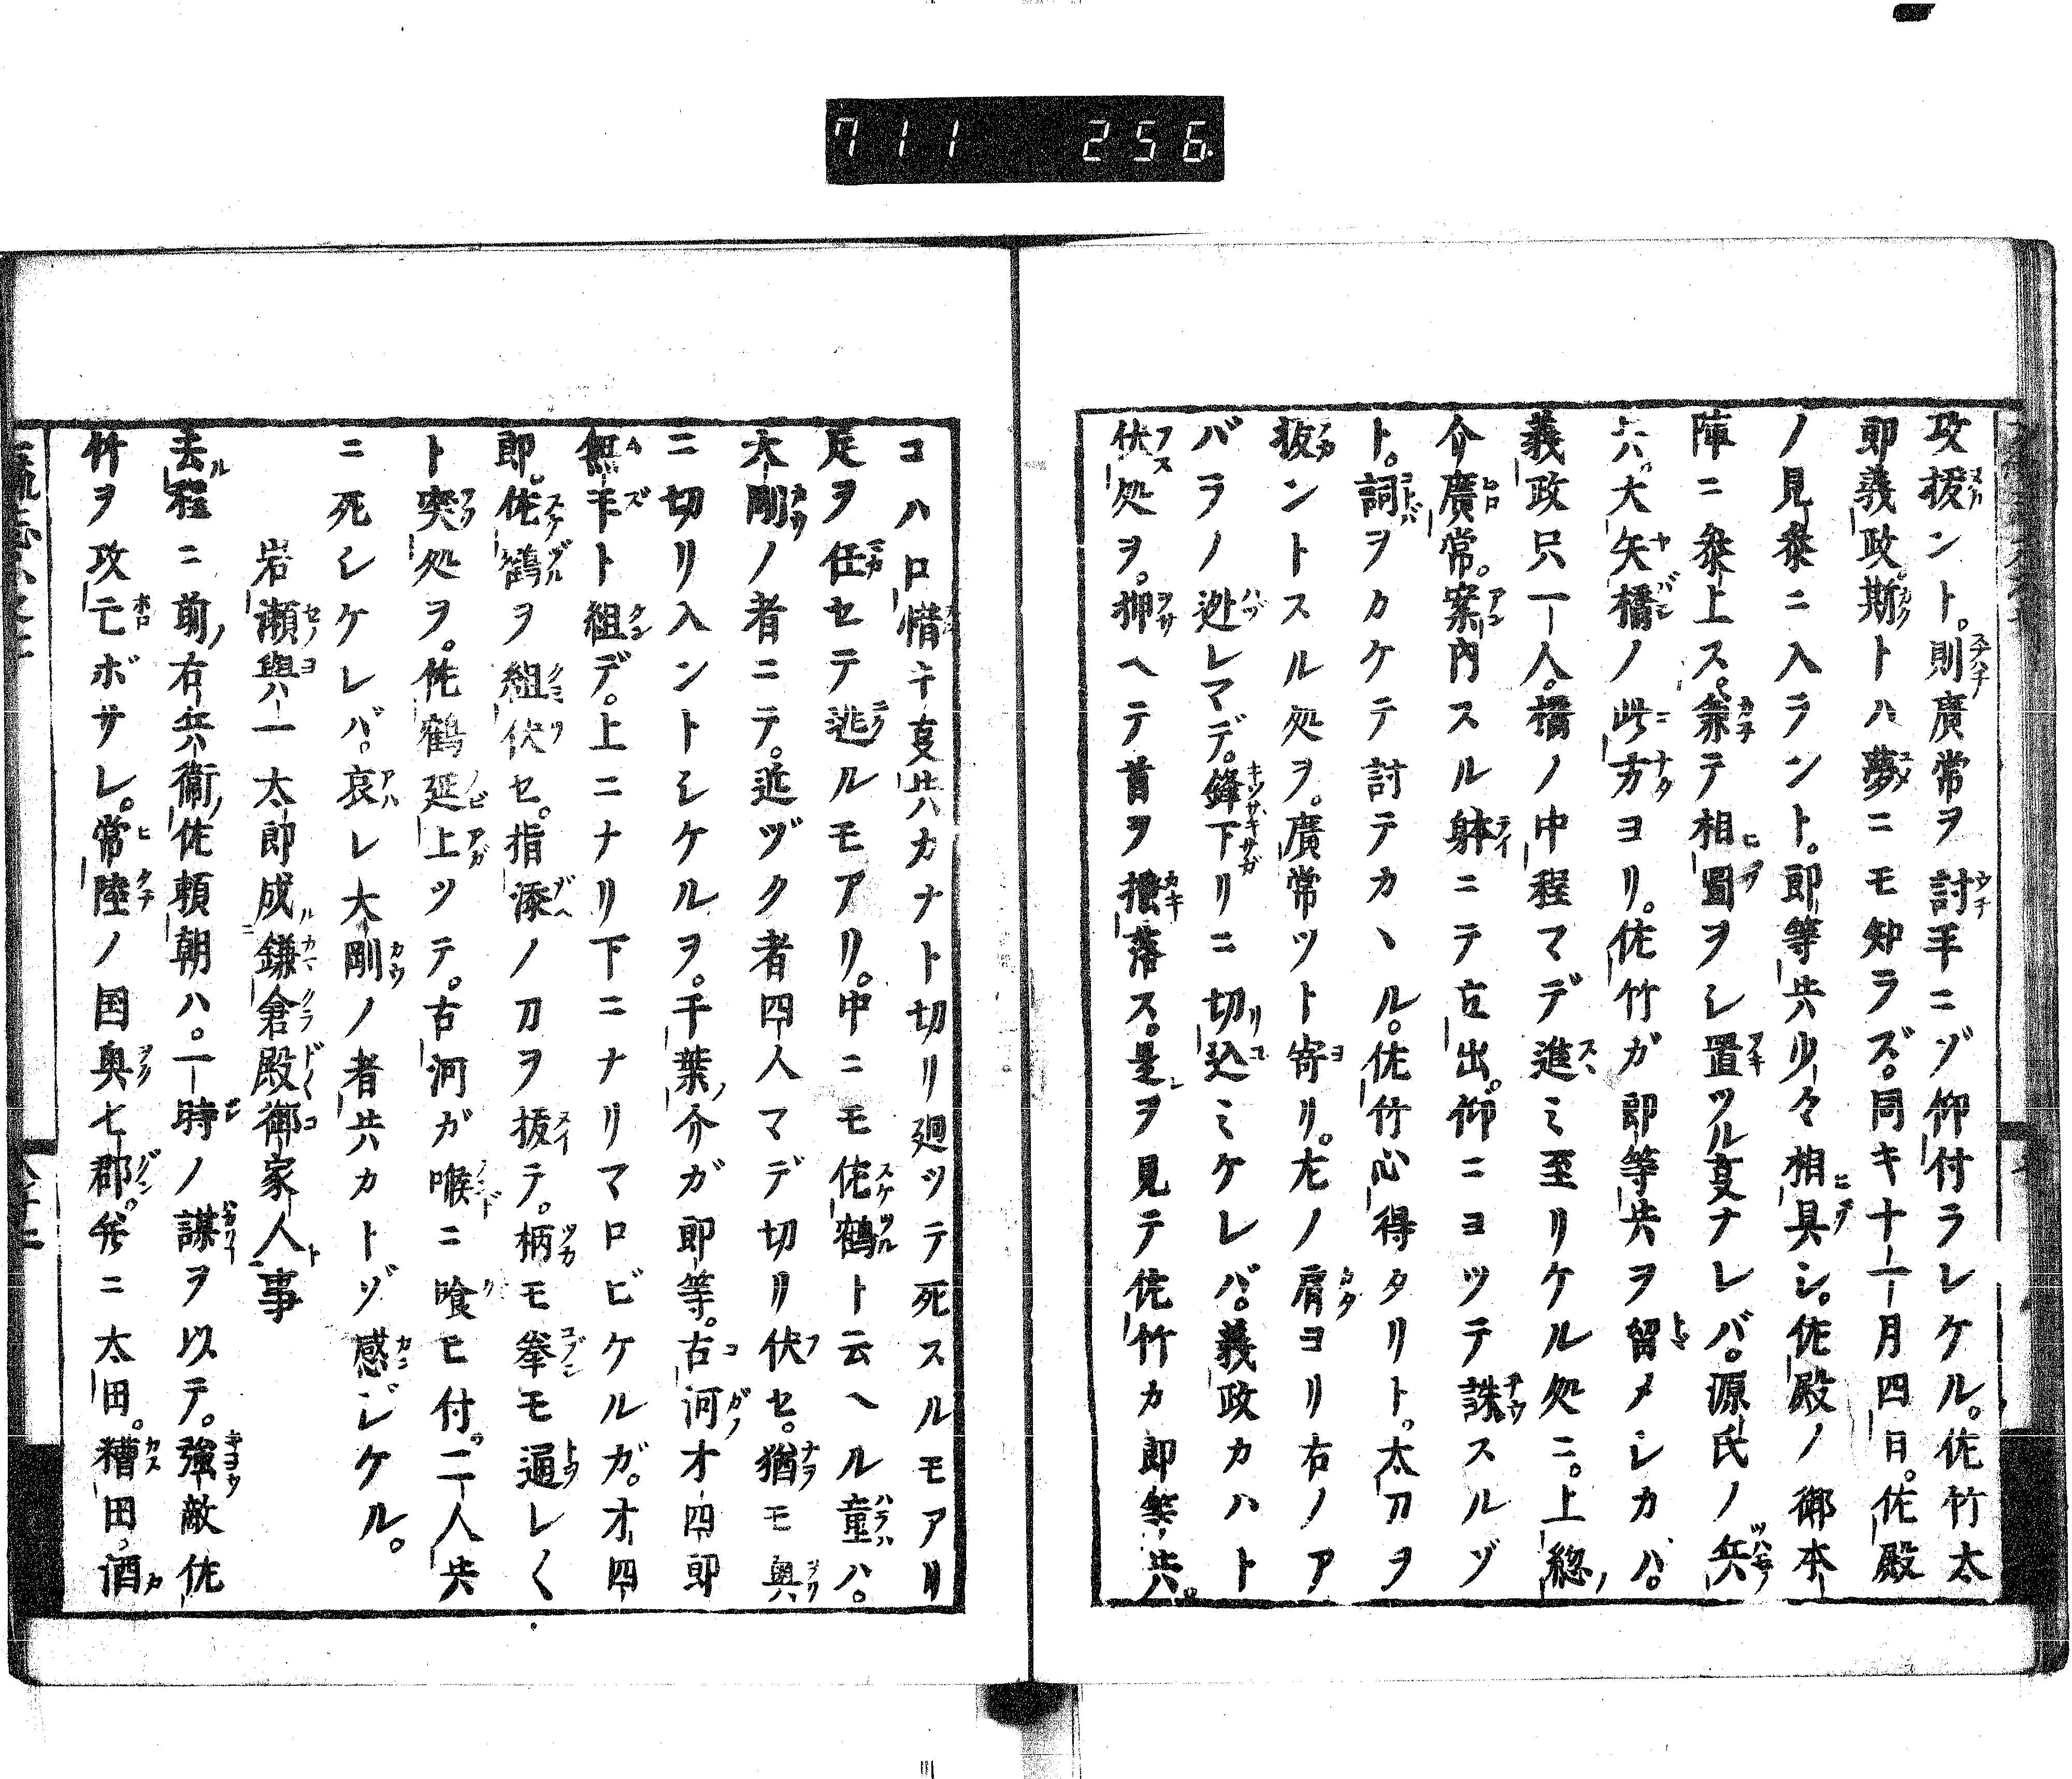 711 256
攻援ント。則廣常ヲ討手ニゾ仰付ラレケル。佐竹太
郎義政。斯トハ夢ニモ知ラズ。同キ十一月四日。佐殿
ノ見参ニ入ラント。郎等共少々相具シ。佐殿ノ御本
陣ニ参上ス。兼テ相圖ヲシ置ツル叓ナレバ。源氏ノ兵
六。大矢橋ノ此方ヨリ。佐竹ガ郎等共ヲ留メシカバ。
義政只一人。橋ノ中程マデ進ミ至リケル処ニ。上総ノ
介廣常。案内スル躰ニテ立出。仰ニヨツテ誅スルゾ
ト。詞ヲカケテ討テカヽル。佐竹心得タリト。太刀ヲ
抜ントスル処ヲ。廣常ツト寄リ。左ノ肩ヨリ右ノア
バラノ迯レマデ。鋒下リニ切込ミケレバ。義政カハト
伏処ヲ。押ヘテ首ヲ掻落ス。是ヲ見テ佐竹カ郎等共。
コハ口惜キ叓共カナト切リ廻ツテ死スルモアリ
足ヲ任セテ逃ルモアリ。中ニモ佐鶴ト云ヘル童ハ。
大剛ノ者ニテ。近ヅク者四人マデ切リ伏セ。猶モ奥
ニ切リ入ントシケルヲ。千葉ノ介ガ郎等。古河才四郎
無手ト組デ。上ニナリ下ニナリマロビケルガ。才四
郎。佐鶴ヲ組伏セ。指添ノ刀ヲ抜テ。柄モ拳モ通レ〱
ト突処ヲ。佐鶴延上ツテ。古河ガ喉ニ喰ヒ付。二人共
ニ死シケレバ。哀レ大剛ノ者共カトゾ感ジケル。
岩瀬與一太郎成鎌倉殿御家人事
去程ニ前ノ右兵衛ノ佐頼朝ハ。一時ノ謀ヲ以テ。強敵佐
竹ヲ攻亡ボサレ。常陸ノ国奥七郡。并ニ太田。糟田。酒